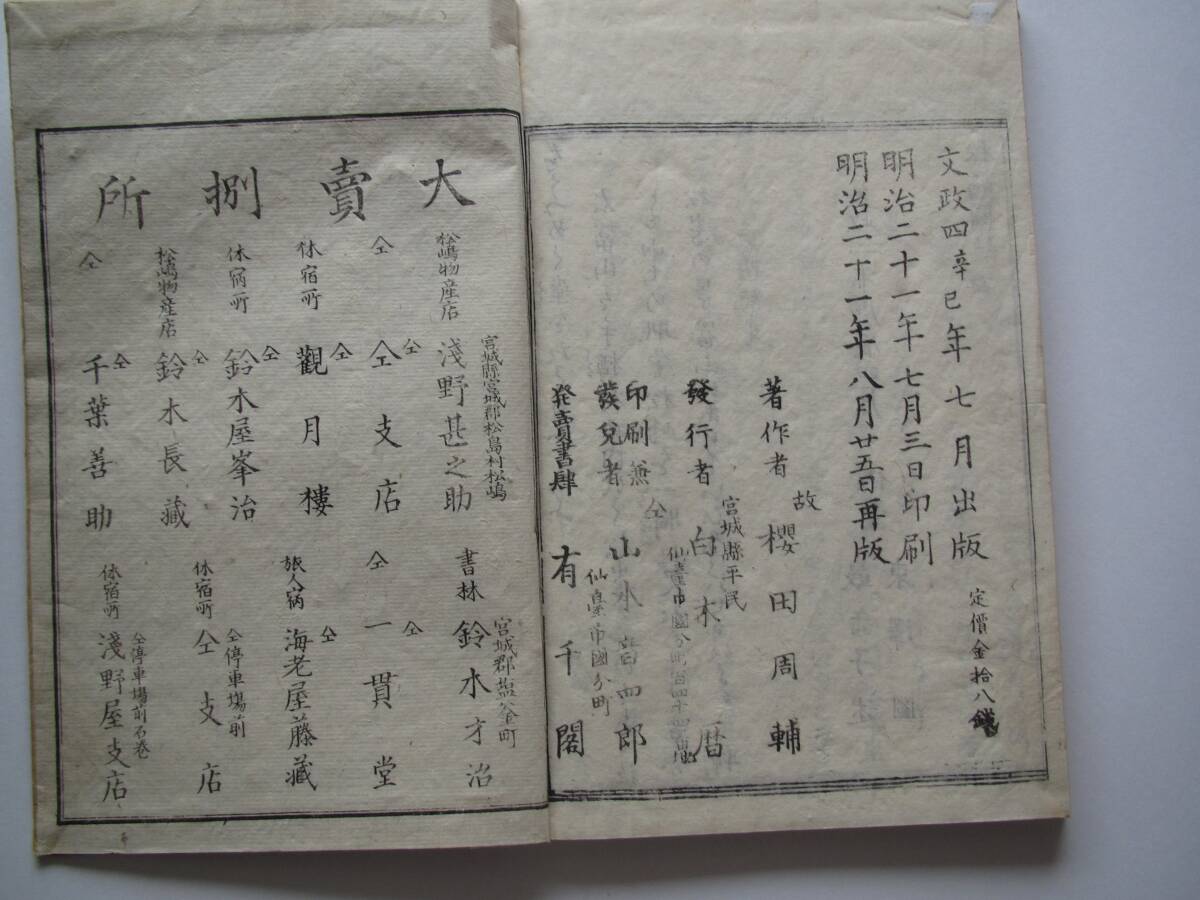 文政四辛巳年七月出版
定價金拾八錢
明治二十一年七月三日印刷
明治二十一年八月廿五日再版
著作者 故 櫻田周輔
宮城縣平民
發行者 白木 暦
印刷兼發兌者 仝 山水 四郎
仙臺市國分町
発賣書肆 有千閣
大賣捌所
宮城縣宮城郡松島村松嶋
松嶋物産店 淺野甚之助
仝 仝 仝支店
休宿所 仝 觀月樓
休宿所 仝 鈴木屋峯治
松嶋物産店 仝 鈴木長藏
仝 仝 千葉善助
宮城郡塩釜町
書林 鈴木才治
仝 仝 一貫堂
旅人宿 仝 海老屋藤藏
仝停車場前
休宿所 仝支店
仝停車場前石巻
休宿所 淺野屋支店